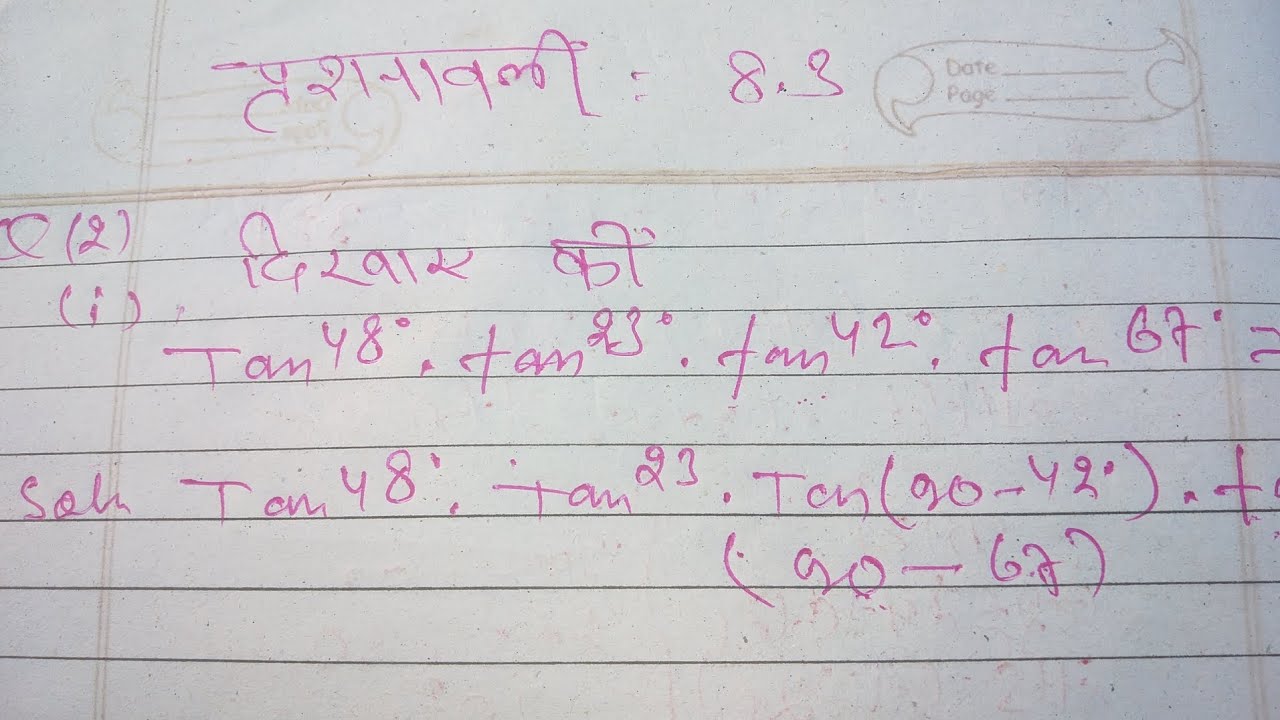 प्रशनावली : 8.3
Date
Page
Q (2) दिखाए कीं
(i).
Tan 48° . tan 23° . tan 42° . tan 67° =
Soln Tan 48° . Tan 23 . Tan (90 - 42°) . t
(90 - 67)